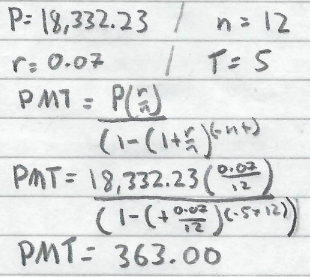 P= 18,332.23 / n = 12
r= 0.07 / T= 5
PMT = P(r/n) / (1-(1+r/n)^(-n+)
PMT= 18,332.23(0.07/12) / (1-(+0.07/12)^(-5*12))
PMT= 363.00